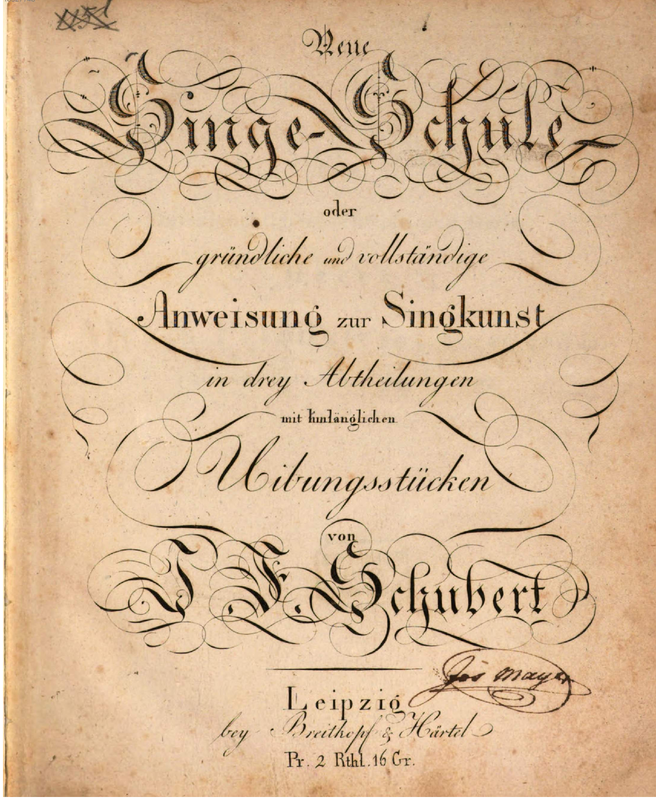 Neue
Singe-Schule
oder
gründliche und vollständige
Anweisung zur Singkunst
in drey Abtheilungen
mit hinlänglichen
Uibungsstücken
von
J. F. Schubert
Jos Mayer
Leipzig
bey Breitkopf & Härtel
Pr. 2 Rthl. 16 Gr.